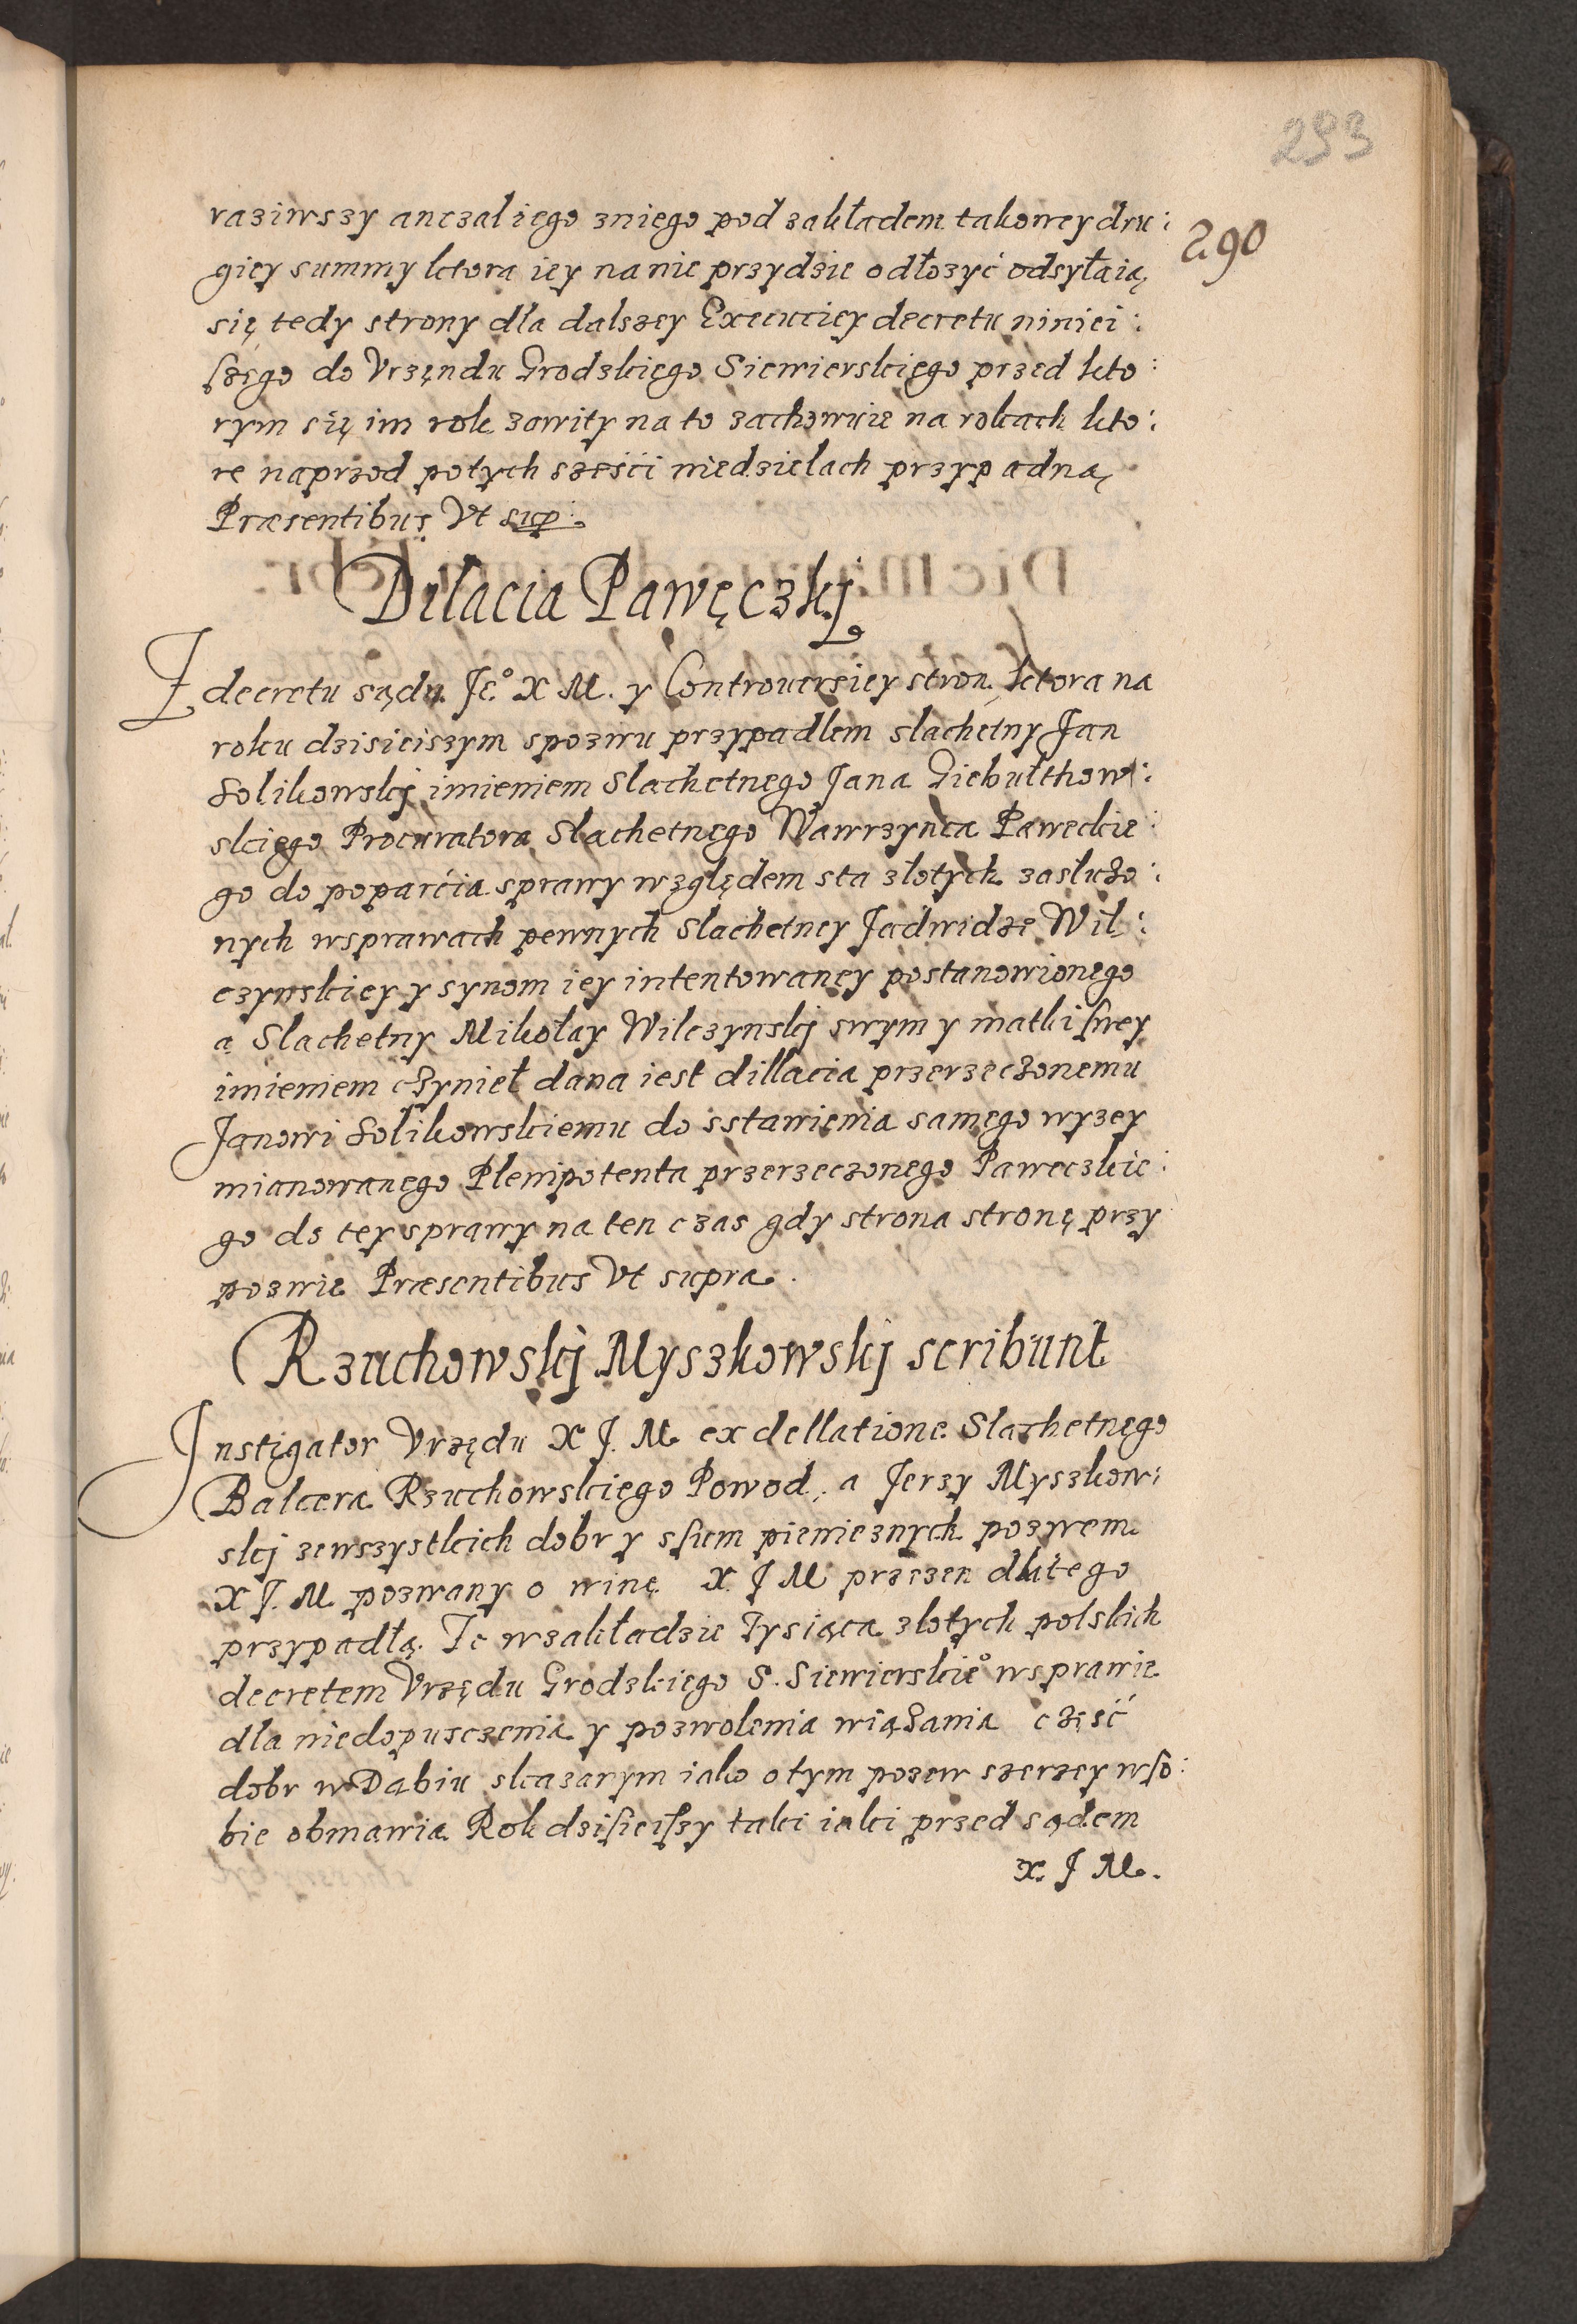 293
290
raziwszy anczal iego zniego pod zakładem takowey dru:
giey summy ktora iey na nie przydzie odłozyć odsyłaią
się tedy strony dla dalszey Execuciey decretu niniei:
ſzego do Vrzędu Grodzkięgo Siewierskięgo przed kto:
rym się im rok zawity na to zachowuie na rokach kto:
re naprzod potych sześci niedzielach przypadną
Præsentibus Vt sup:
Dilacia Pawęczkj
Z decretu sądu Je.º X M. y Controuersiey stron, ktora na
roku dzisieiszym spozwu przypadłem slachetny Jan
Solikowskj imieniem Slachetnego Jana Giebułthow:
skięgo Procuratora Slachetnęgo Wawrzynca Paweckie:
go do poparćia sprawy względem sta złotych zasłużo:
nych wsprawach pewnych Slachetney Jadwidze Wil:
czynskiey y synom iey intentowaney postanowionego
a Slachetny Mikołay Wilczynskj swym y matki ſwey
imieniem czynieł dana iest dillacia przerzeczonemu
Janowi Solikowskiemu do sstawienia samęgo wyzey
mianowanęgo Plenipotenta przerzeczonego Paweczkie:
go do tey sprawy na ten czas gdy strona stronę przy
pozwie Præsentibus Vt supra.
Rzuchowskj Myszkowskj scribunt
Instigator Vrzędu X J. M ex dellatione Slachetnęgo
Balcera Rzuchowskięgo Powod, a Jerzy Myszkow:
skj zewszystkich dobr y sſum pienieznych pozwem
X J. M pozwany o winę X. J M przezen dlatego
przypadłą. Ze wzakładzie Tysiąca złotych polskich
decretem Vrzędu Grodzkięgo S. Siewierskieº wsprawie
dla niedopusczenia y pozwolenia wiązania częsć
dobr w Dąbiu skazanym iako o tym pozew szerzey wſo:
bie obmawia Rok dziſieiſzy taki iaki przed sądem
X. J M.